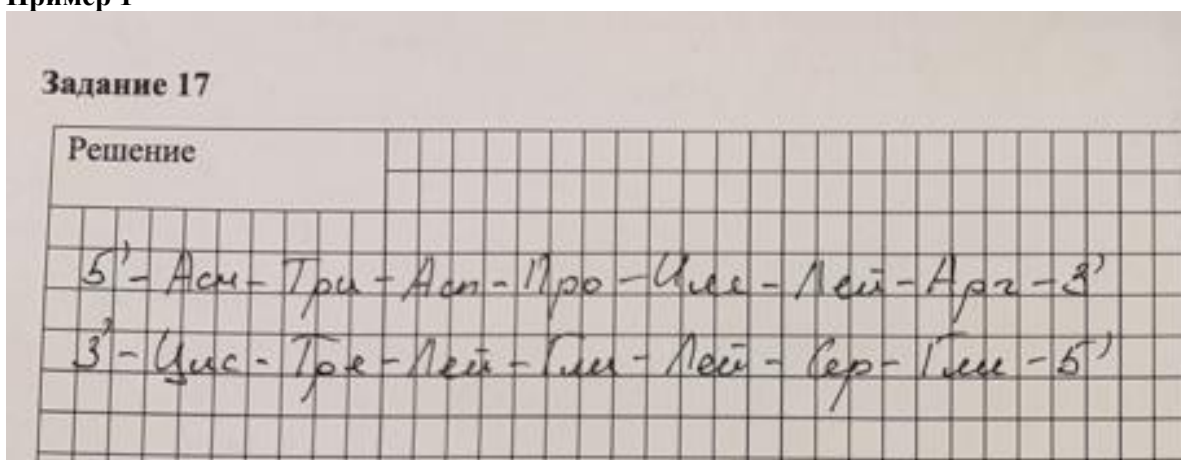 Пример 1
Задание 17
Решение
5'-Асн-Три-Асп-Про-Иле-Лей-Арг-3'
3'-Цис-Тре-Лей-Гли-Лей-Сер-Гли-5'